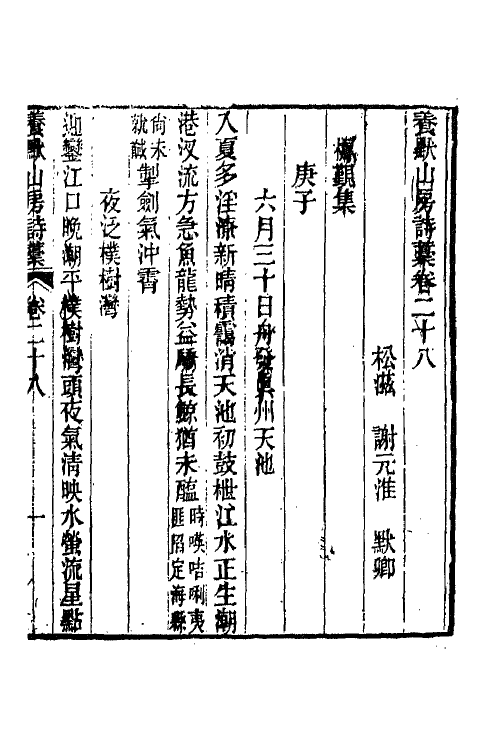 養默山房詩藁卷二十八
松滋　謝元淮　默卿
觀集
庚子
六月三十日舟發真州天池
入夏多淫流新晴積靄消天池初鼓枻江水正生潮
港汊流方急魚龍勢益驕長鯨猶未醢時暎咭唎夷匪陷定海縣
尚未就馘掣劍氣沖霄
夜泛樸樹灣
迎鑾江口晚潮平樸樹灣頭夜氣清映水螢流星點
養默山房詩藁　卷二十八　一